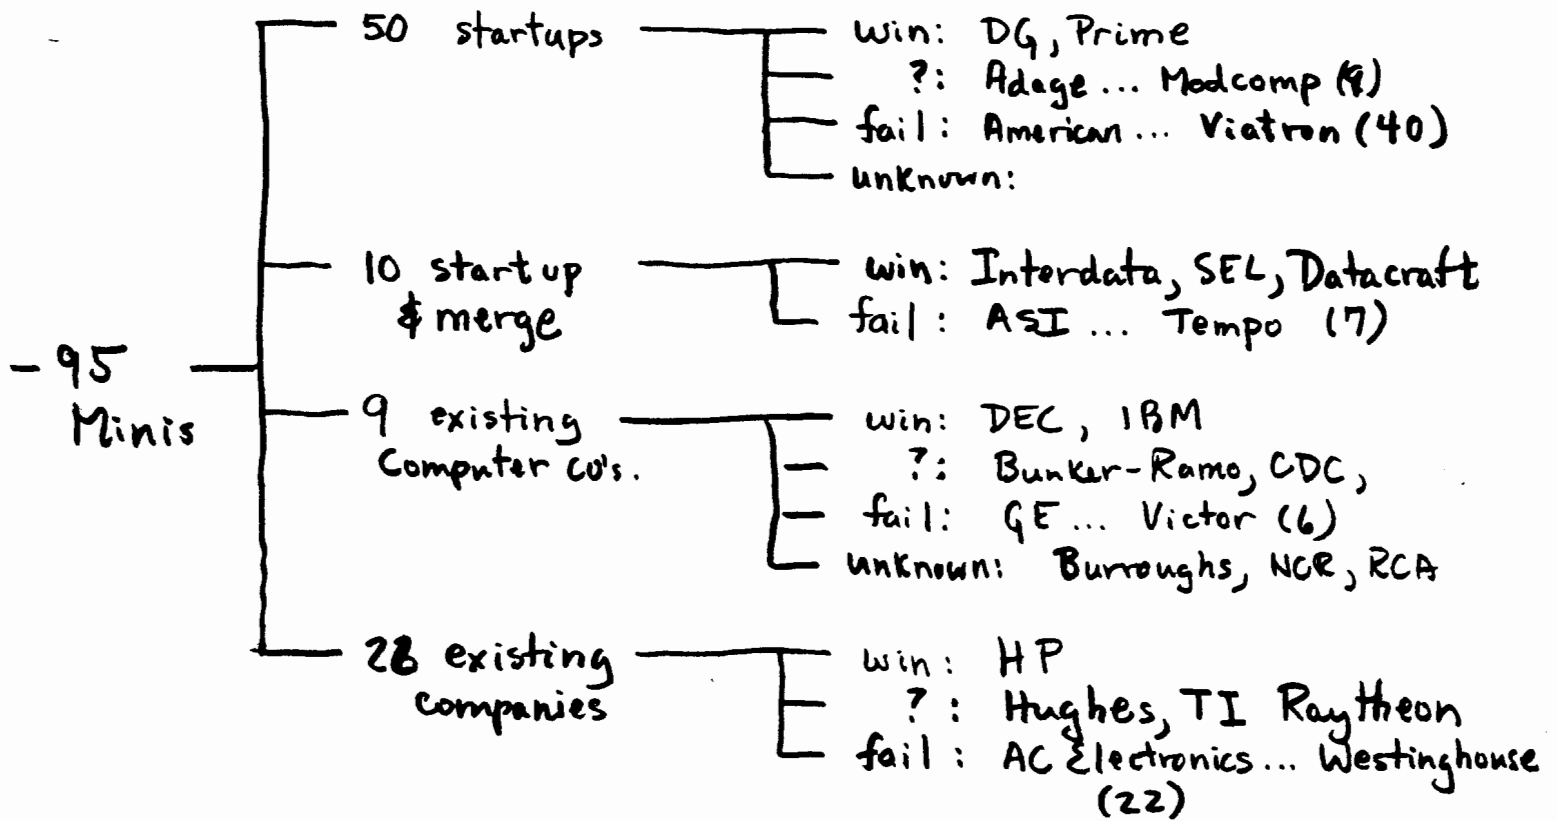 50 startups
win: DG, Prime
?: Adage... Modcomp
fail: American... Viatron (40)
unknown:
10 startup
& merge
win: Interdata, SEL, Datacraft
fail: ASI ... Tempo (7)
- 95
Minis
9 existing
Computer co's.
win: DEC, IBM
?: Bunker-Ramo, CDC,
fail: GE... Victor (6)
unknown: Burroughs, NCR, RCA
existing
companies
win: HP
?: Hughes, TI Raytheon
fail: AC Electronics... Westinghouse
(22)